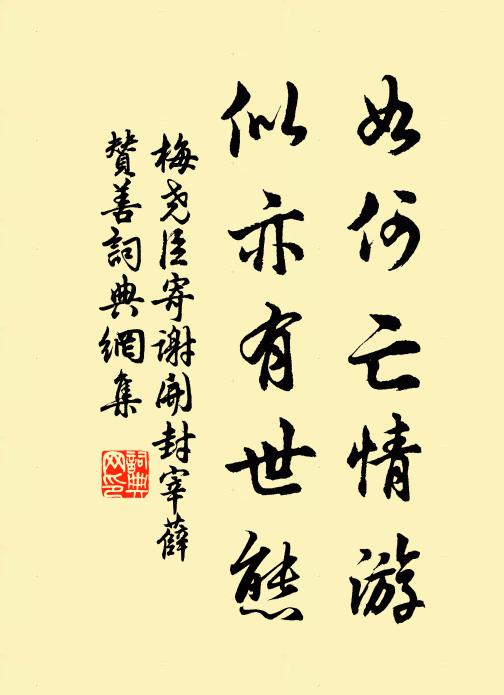 如何亡情游
似亦有世態
梅堯臣寄謝開封宰薛
贊善詞典網集
詞典网印